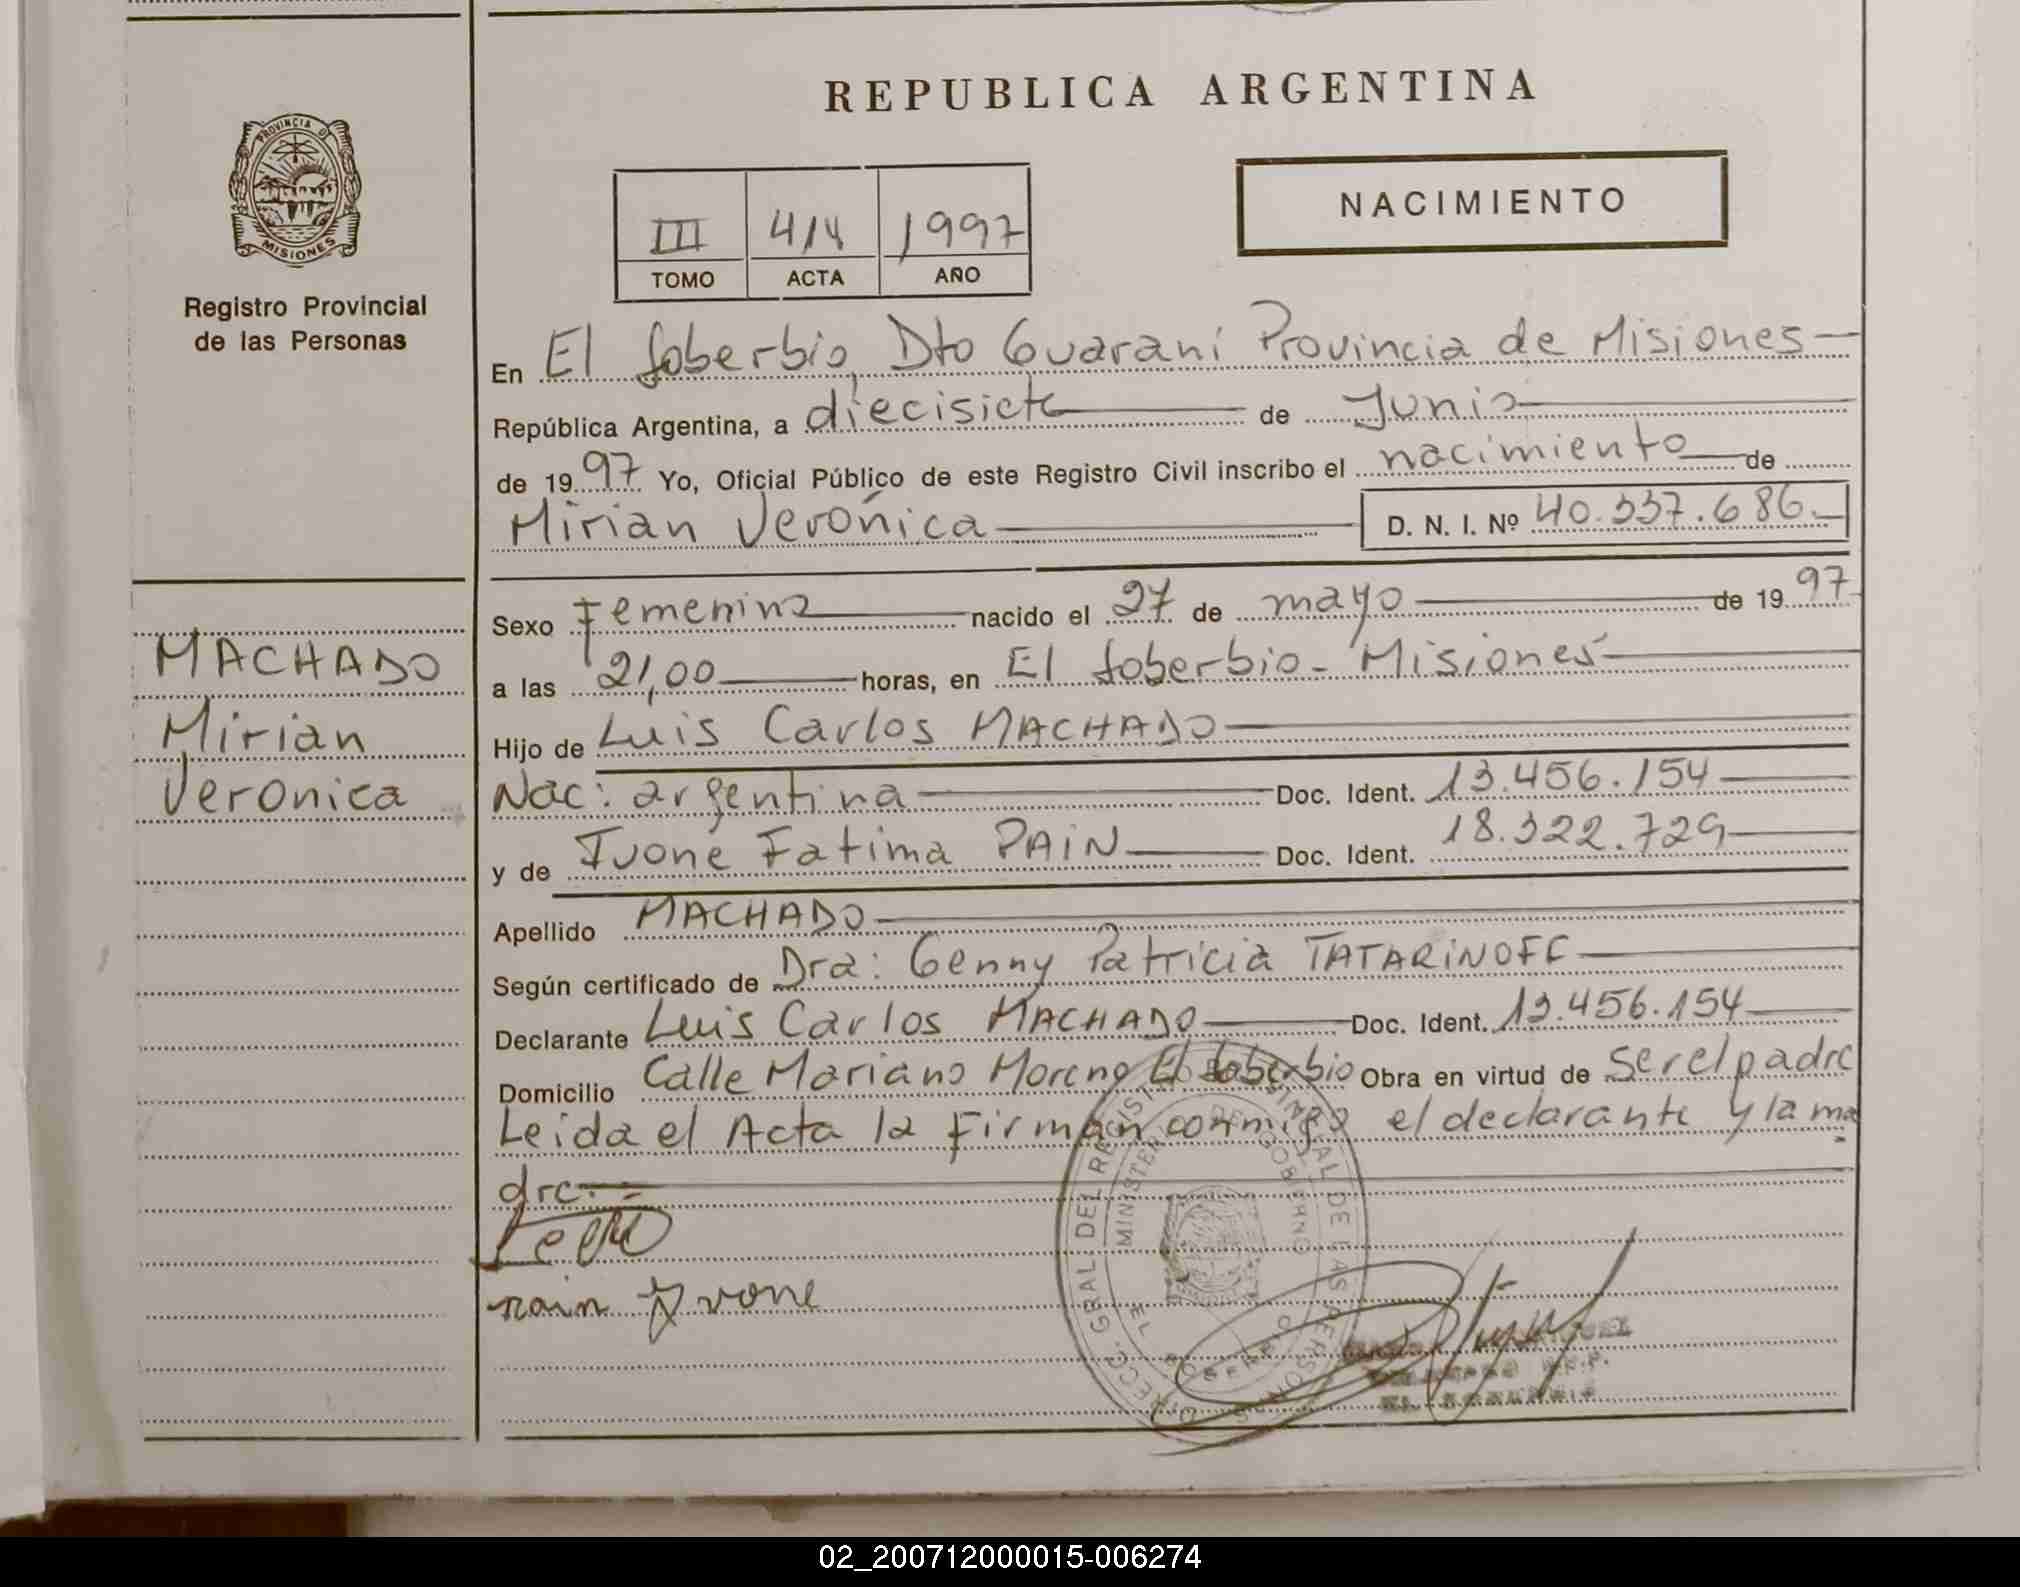 REPUBLICA ARGENTINA
PROVINCIA D
MISIONES
Registro Provincial
de las Personas
III 414 1997
TOMO ACTA AÑO
NACIMIENTO
En El Soberbio, Dto Guaraní Provincia de Misiones
República Argentina, a diecisiete de Junio
de 1997 Yo, Oficial Público de este Registro Civil inscribo el nacimiento de
Mirian Verónica D. N. I. Nº 40.337.686.
MACHADO
Mirian
Veronica
Sexo Femenino nacido el 27 de mayo de 1997
a las 21,00 horas, en El Soberbio - Misiones
Hijo de Luis Carlos MACHADO
Nac: argentina Doc. Ident. 13.456.154
y de Ivone Fatima PAIN Doc. Ident. 18.322.729
Apellido MACHADO
Según certificado de Dra: Genny Patricia TATARINOFF
Declarante Luis Carlos MACHADO Doc. Ident. 13.456.154
Domicilio Calle Mariano Moreno El Soberbio Obra en virtud de ser el padre
Leida el Acta la Firman conmigo el declarante y la ma
dre.
Pain Ivone
DIRECC. GRAL. DEL REGIST PROVINCIAL DE LAS PERSONAS
MINISTERIO DE GOBIERNO
EL SOBERBIO
02_200712000015-006274